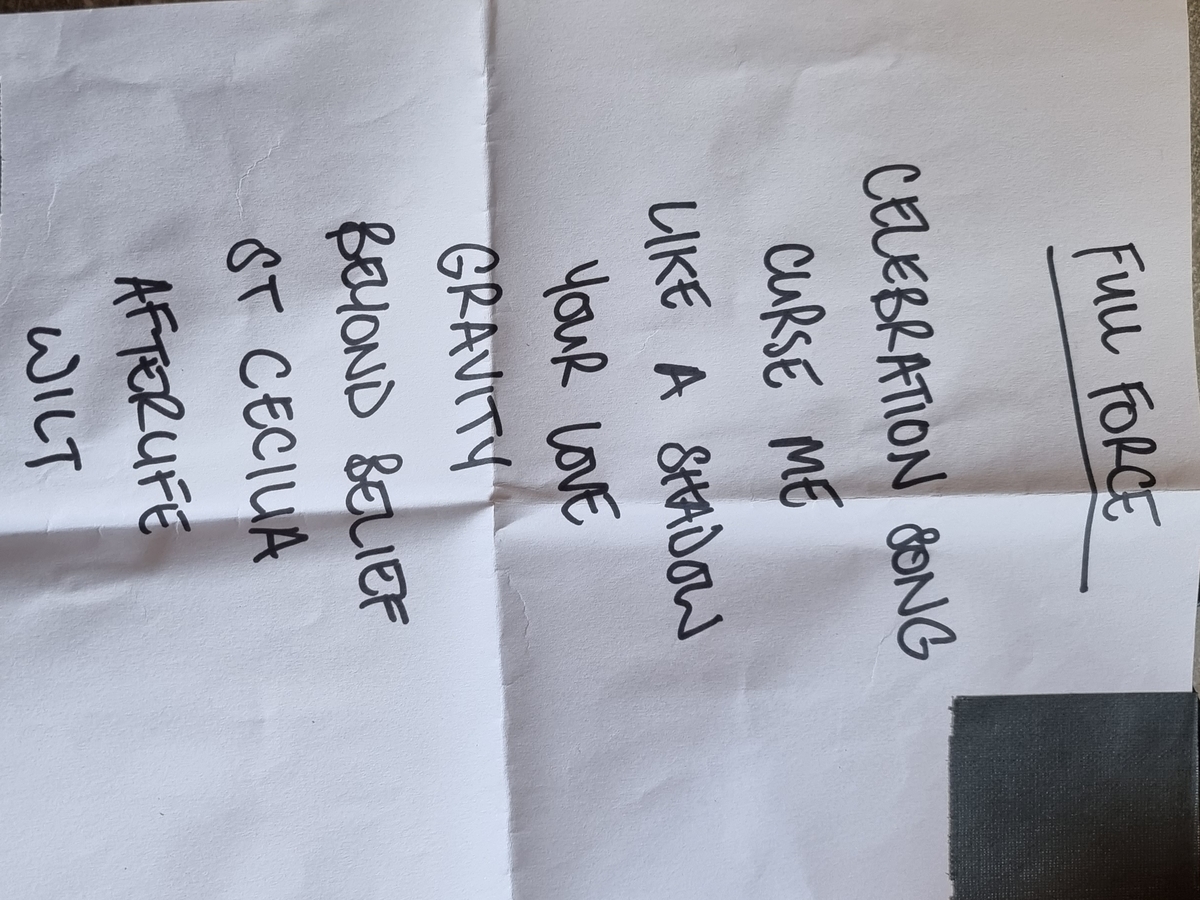 FULL FORCE
CELEBRATION SONG
CURSE ME
LIKE A SHADOW
YOUR LOVE
GRAVITY
BEYOND BELIEF
ST CECILIA
AFTERLIFE
WILT